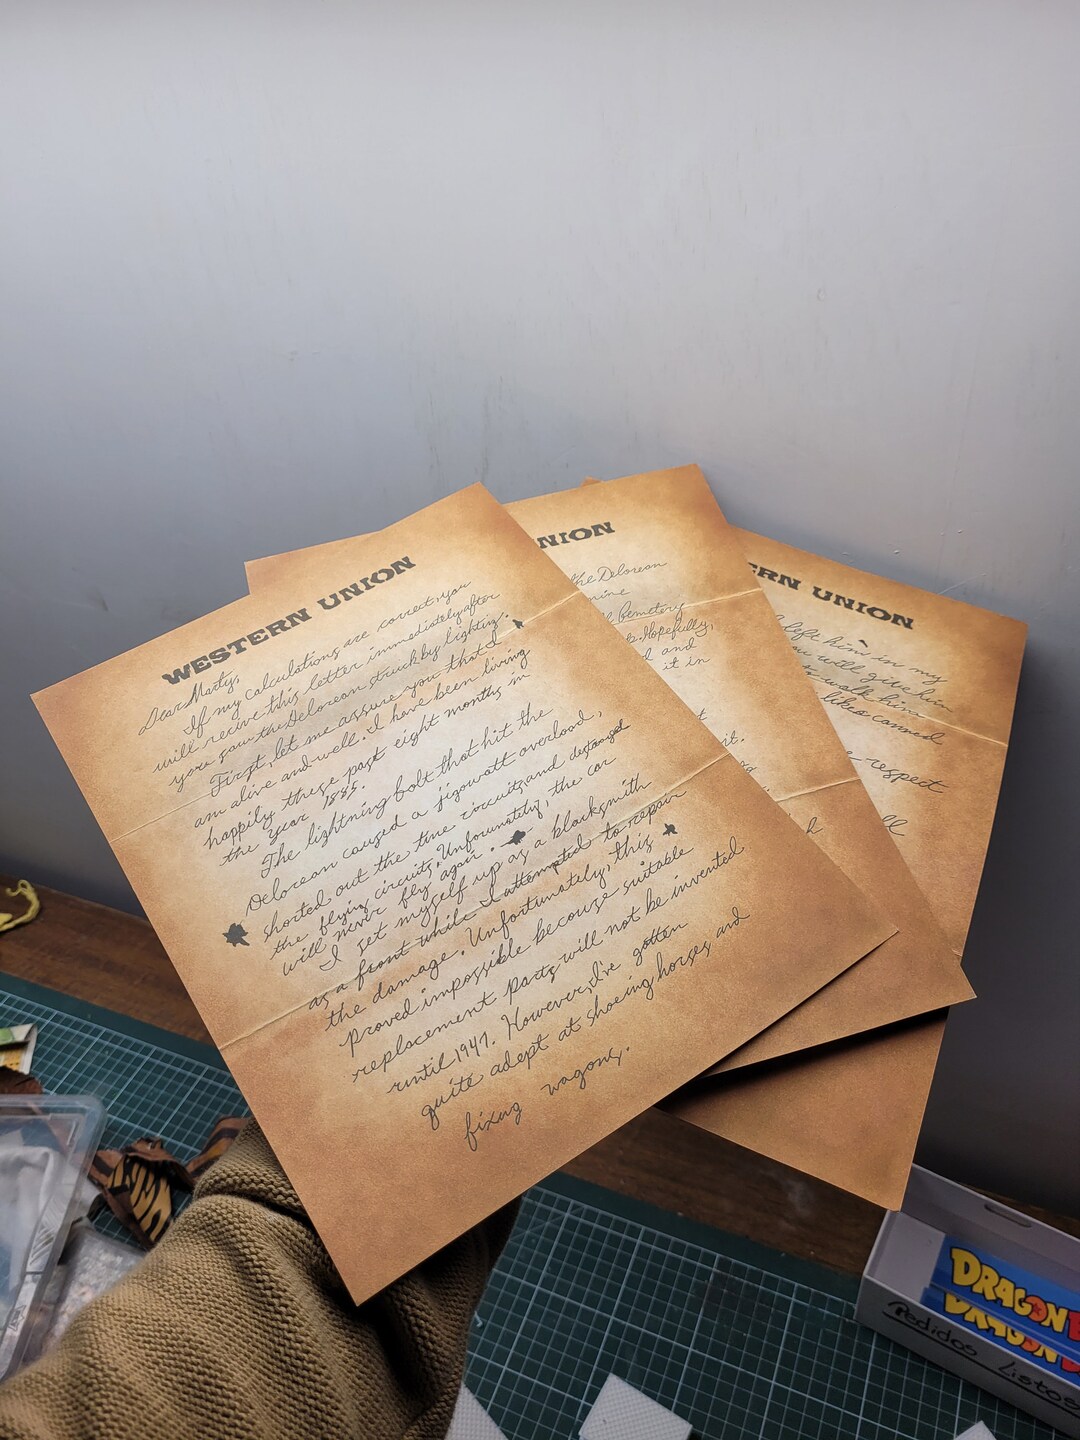 WESTERN UNION
Dear Marty,
If my calculations are correct, you
will recive this letter immediately after
you saw the Delorean struck by lighting.
First, let me assure you that I
am alive and well. I have been living
happily these past eight months in
the year 1885.
The lightning bolt that hit the
Delorean caused a jigowatt overload,
shorted out the time circuits, and destroyed
the flying circuits. Unforunately, the car
will never fly again.
I set myself up as a blacksmith
as a front while I attempted to repair
the damage. Unfortunately, this
proved impossible because suitable
replacement parts will not be invented
until 1947. However, I've gotten
quite adept at shoeing horses and
fixing wagons.
NION
the Delorean
mine
Cemetery
Hopefully,
and
it in
it.
ERN UNION
left him in my
you will give him
to walk him
likes canned
respect
DRAGON
DRAGON
Pedidos Listos